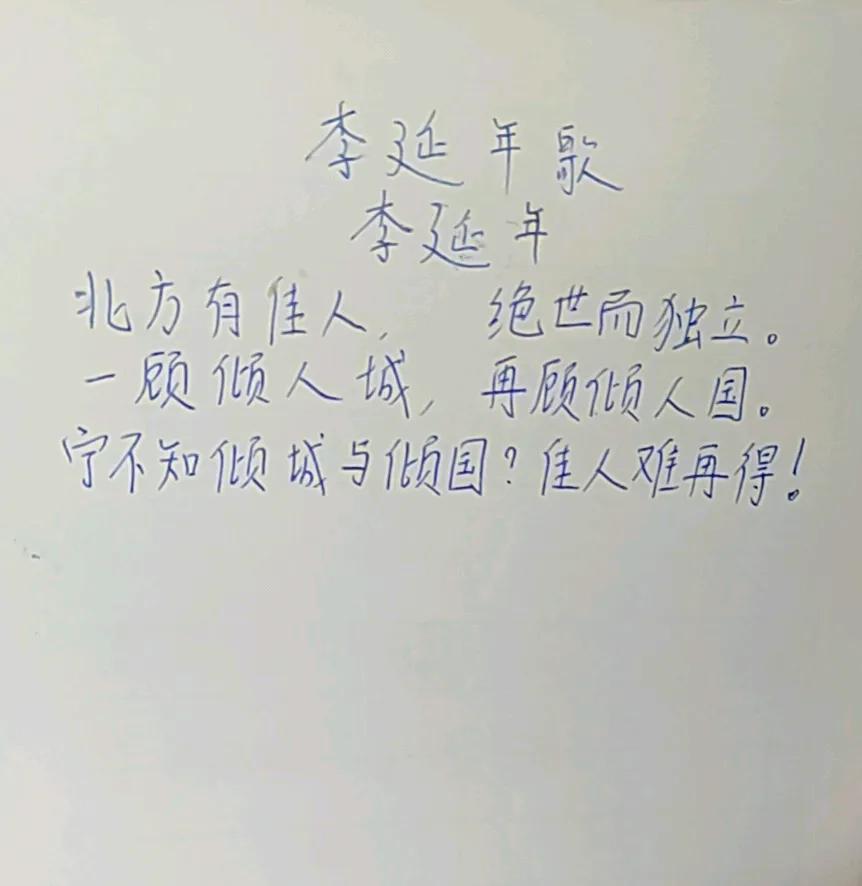 李延年歌
李延年
北方有佳人, 绝世而独立。
一顾倾人城, 再顾倾人国。
宁不知倾城与倾国?佳人难再得!